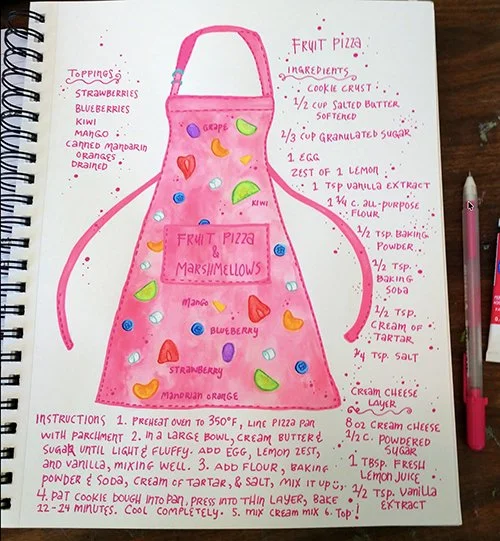 FRUIT PIZZA
TOPPINGS
STRAWBERRIES
BLUEBERRIES
KIWI
MANGO
CANNED MANDARIN
ORANGES
DRAINED
INGREDIENTS
COOKIE CRUST
1/2 CUP SALTED BUTTER
SOFTENED
2/3 CUP GRANULATED SUGAR
1 EGG
ZEST OF 1 LEMON
1 TSP VANILLA EXTRACT
1 3/4 C. ALL-PURPOSE
FLOUR
1/2 TSP. BAKING
POWDER
1/2 TSP.
BAKING
SODA
1/2 TSP.
CREAM OF
TARTAR
1/4 TSP. SALT
GRAPE
KIWI
FRUIT PIZZA
&
MARSHMELLOWS
MANGO
BLUEBERRY
STRAWBERRY
MANDRIAN ORANGE
CREAM CHEESE
LAYER
8 OZ CREAM CHEESE
1/2 C. POWDERED
SUGAR
1 TBSP. FRESH
LEMON JUICE
1/2 TSP. VANILLA
EXTRACT
INSTRUCTIONS 1. PREHEAT OVEN TO 350°F, LINE PIZZA PAN
WITH PARCHMENT 2. IN A LARGE BOWL, CREAM BUTTER &
SUGAR UNTIL LIGHT & FLUFFY. ADD EGG, LEMON ZEST,
AND VANILLA, MIXING WELL. 3. ADD FLOUR, BAKING
POWDER & SODA, CREAM OF TARTAR, & SALT, MIX IT UP
4. PAT COOKIE DOUGH INTO PAN, PRESS INTO THIN LAYER, BAKE
12-14 MINUTES. COOL COMPLETELY. 5. MIX CREAM MIX 6. TOP!